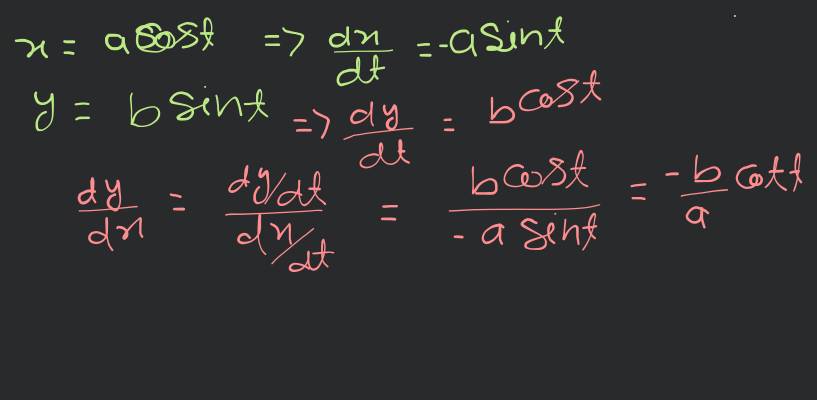 x = a cost => dx/dt = -a sint
y = b sint => dy/dt = b cost
dy/dx = dy/dt / dx/dt = b cost / -a sint = -b/a cott